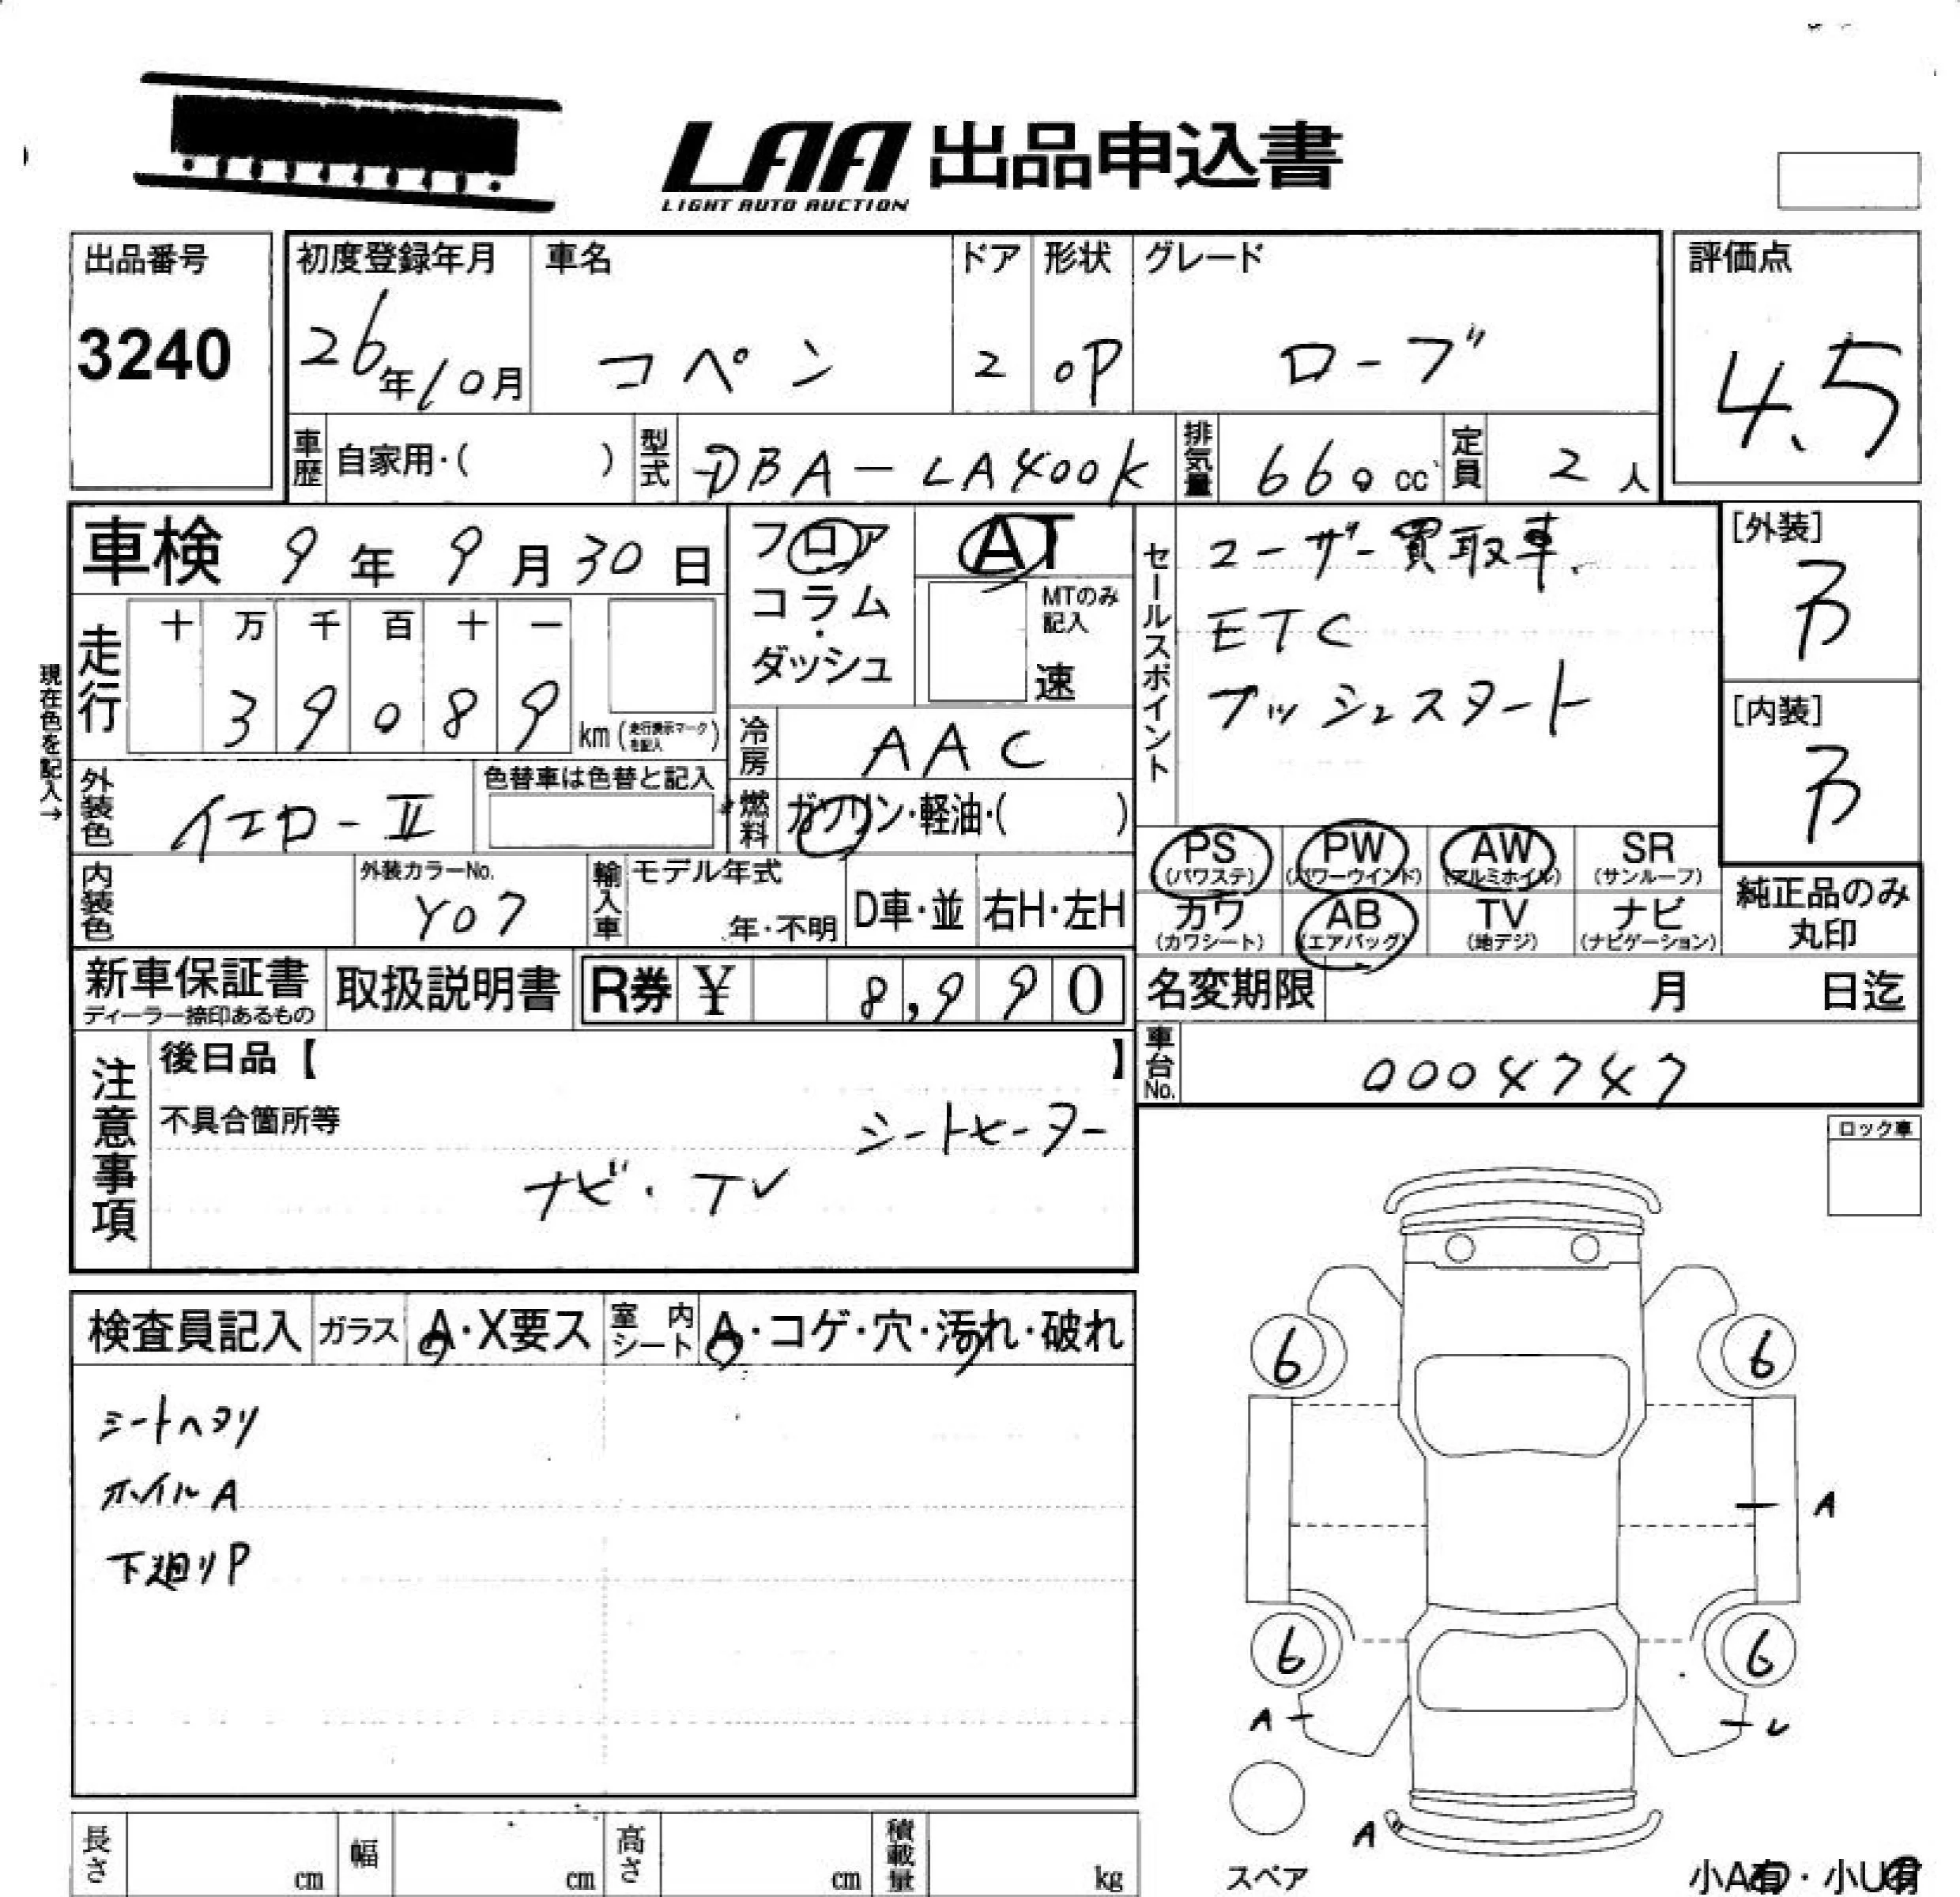 LAA 出品申込書
LIGHT AUTO AUCTION
出品番号
3240
初度登録年月
26年10月
車名
コペン
ドア
2
形状
OP
グレード
ローブ
評価点
4.5
車歴 自家用・( )
型式 DBA-LA400K
排気量 660cc
定員 2人
車検 9年9月30日
フロア
コラム
・
ダッシュ
AT
MTのみ
記入
速
セールスポイント
ユーザー買取車.
ETC
プッシュスタート
[外装]
B
[内装]
B
現在色を記入→
走行
十 万 千 百 十 一
3 9 0 8 9 km(走行表示マークを記入)
冷房 AAC
外装色 イエロ-II
色替車は色替と記入
燃料 ガソリン・軽油・( )
PS
(パワステ)
PW
(パワーウインド)
AW
(アルミホイル)
SR
(サンルーフ)
内装色
外装カラーNo.
Y07
輸入車
モデル年式
年・不明
D車・並
右H・左H
カワ
(カワシート)
AB
(エアバッグ)
TV
(地デジ)
ナビ
(ナビゲーション)
純正品のみ
丸印
新車保証書
ディーラー捺印あるもの
取扱説明書
R券 ¥ 8,990
名変期限 月 日迄
車台No. 0004747
注意事項
後日品【 】
不具合箇所等
シートヒーター
ナビ・TV
ロック車
検査員記入
ガラス A・X要ス
室内シート A・コゲ・穴・汚れ・破れ
シートヘタリ
ホイルA
下廻りP
6 6
A
6 6
A
U
A
スペア
小A有・小U有
長さ cm
幅 cm
高さ cm
積載量 kg